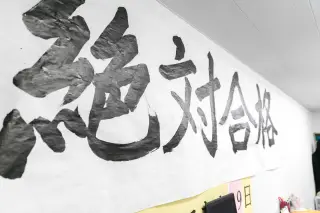 絶対合格
9日